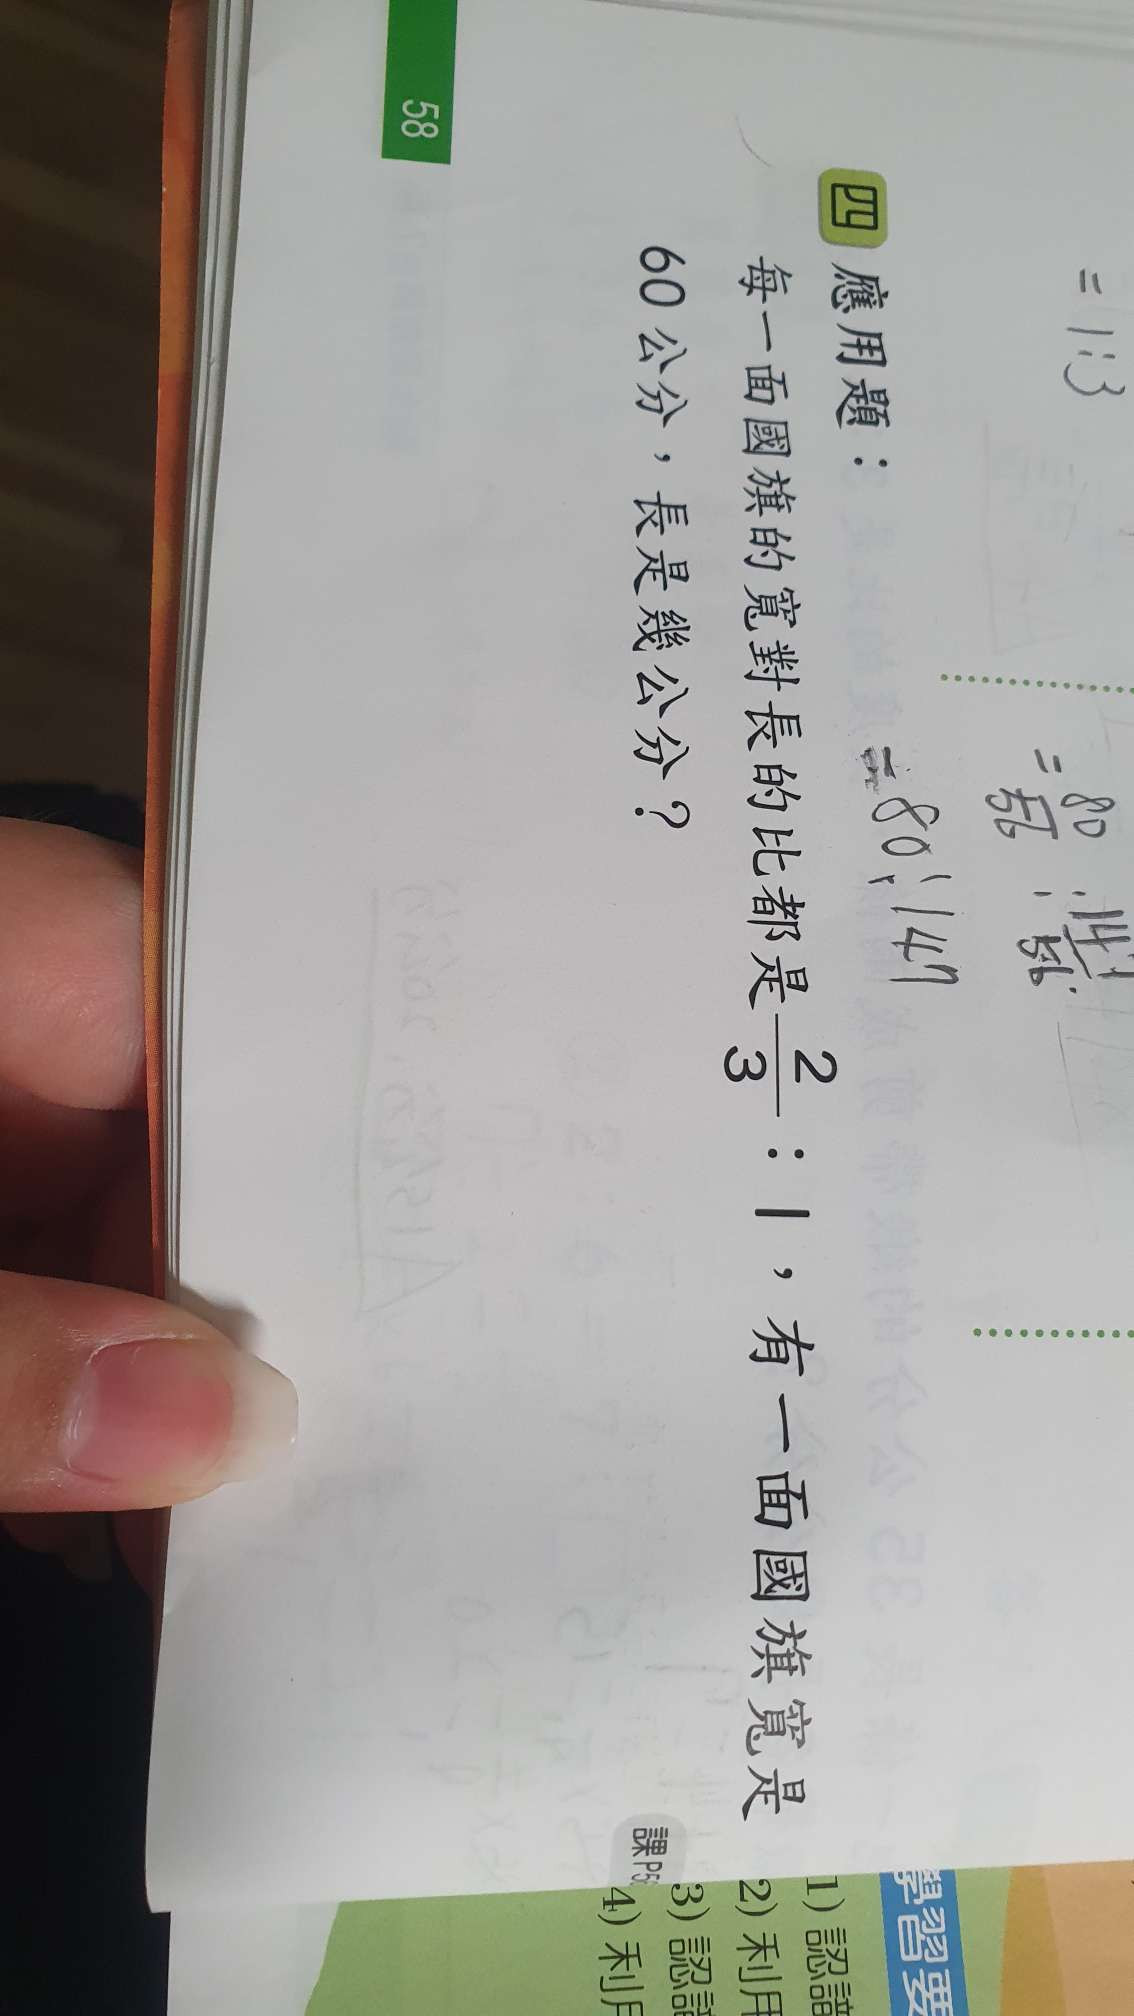 = 1:3
= 80/56 : 147/56
= 80:147
四 應用題：
每一面國旗的寬對長的比都是2/3：1，有一面國旗寬是
60公分，長是幾公分？
課P5
58
學習要
1) 認識
2) 利用
3) 認識
4) 利用